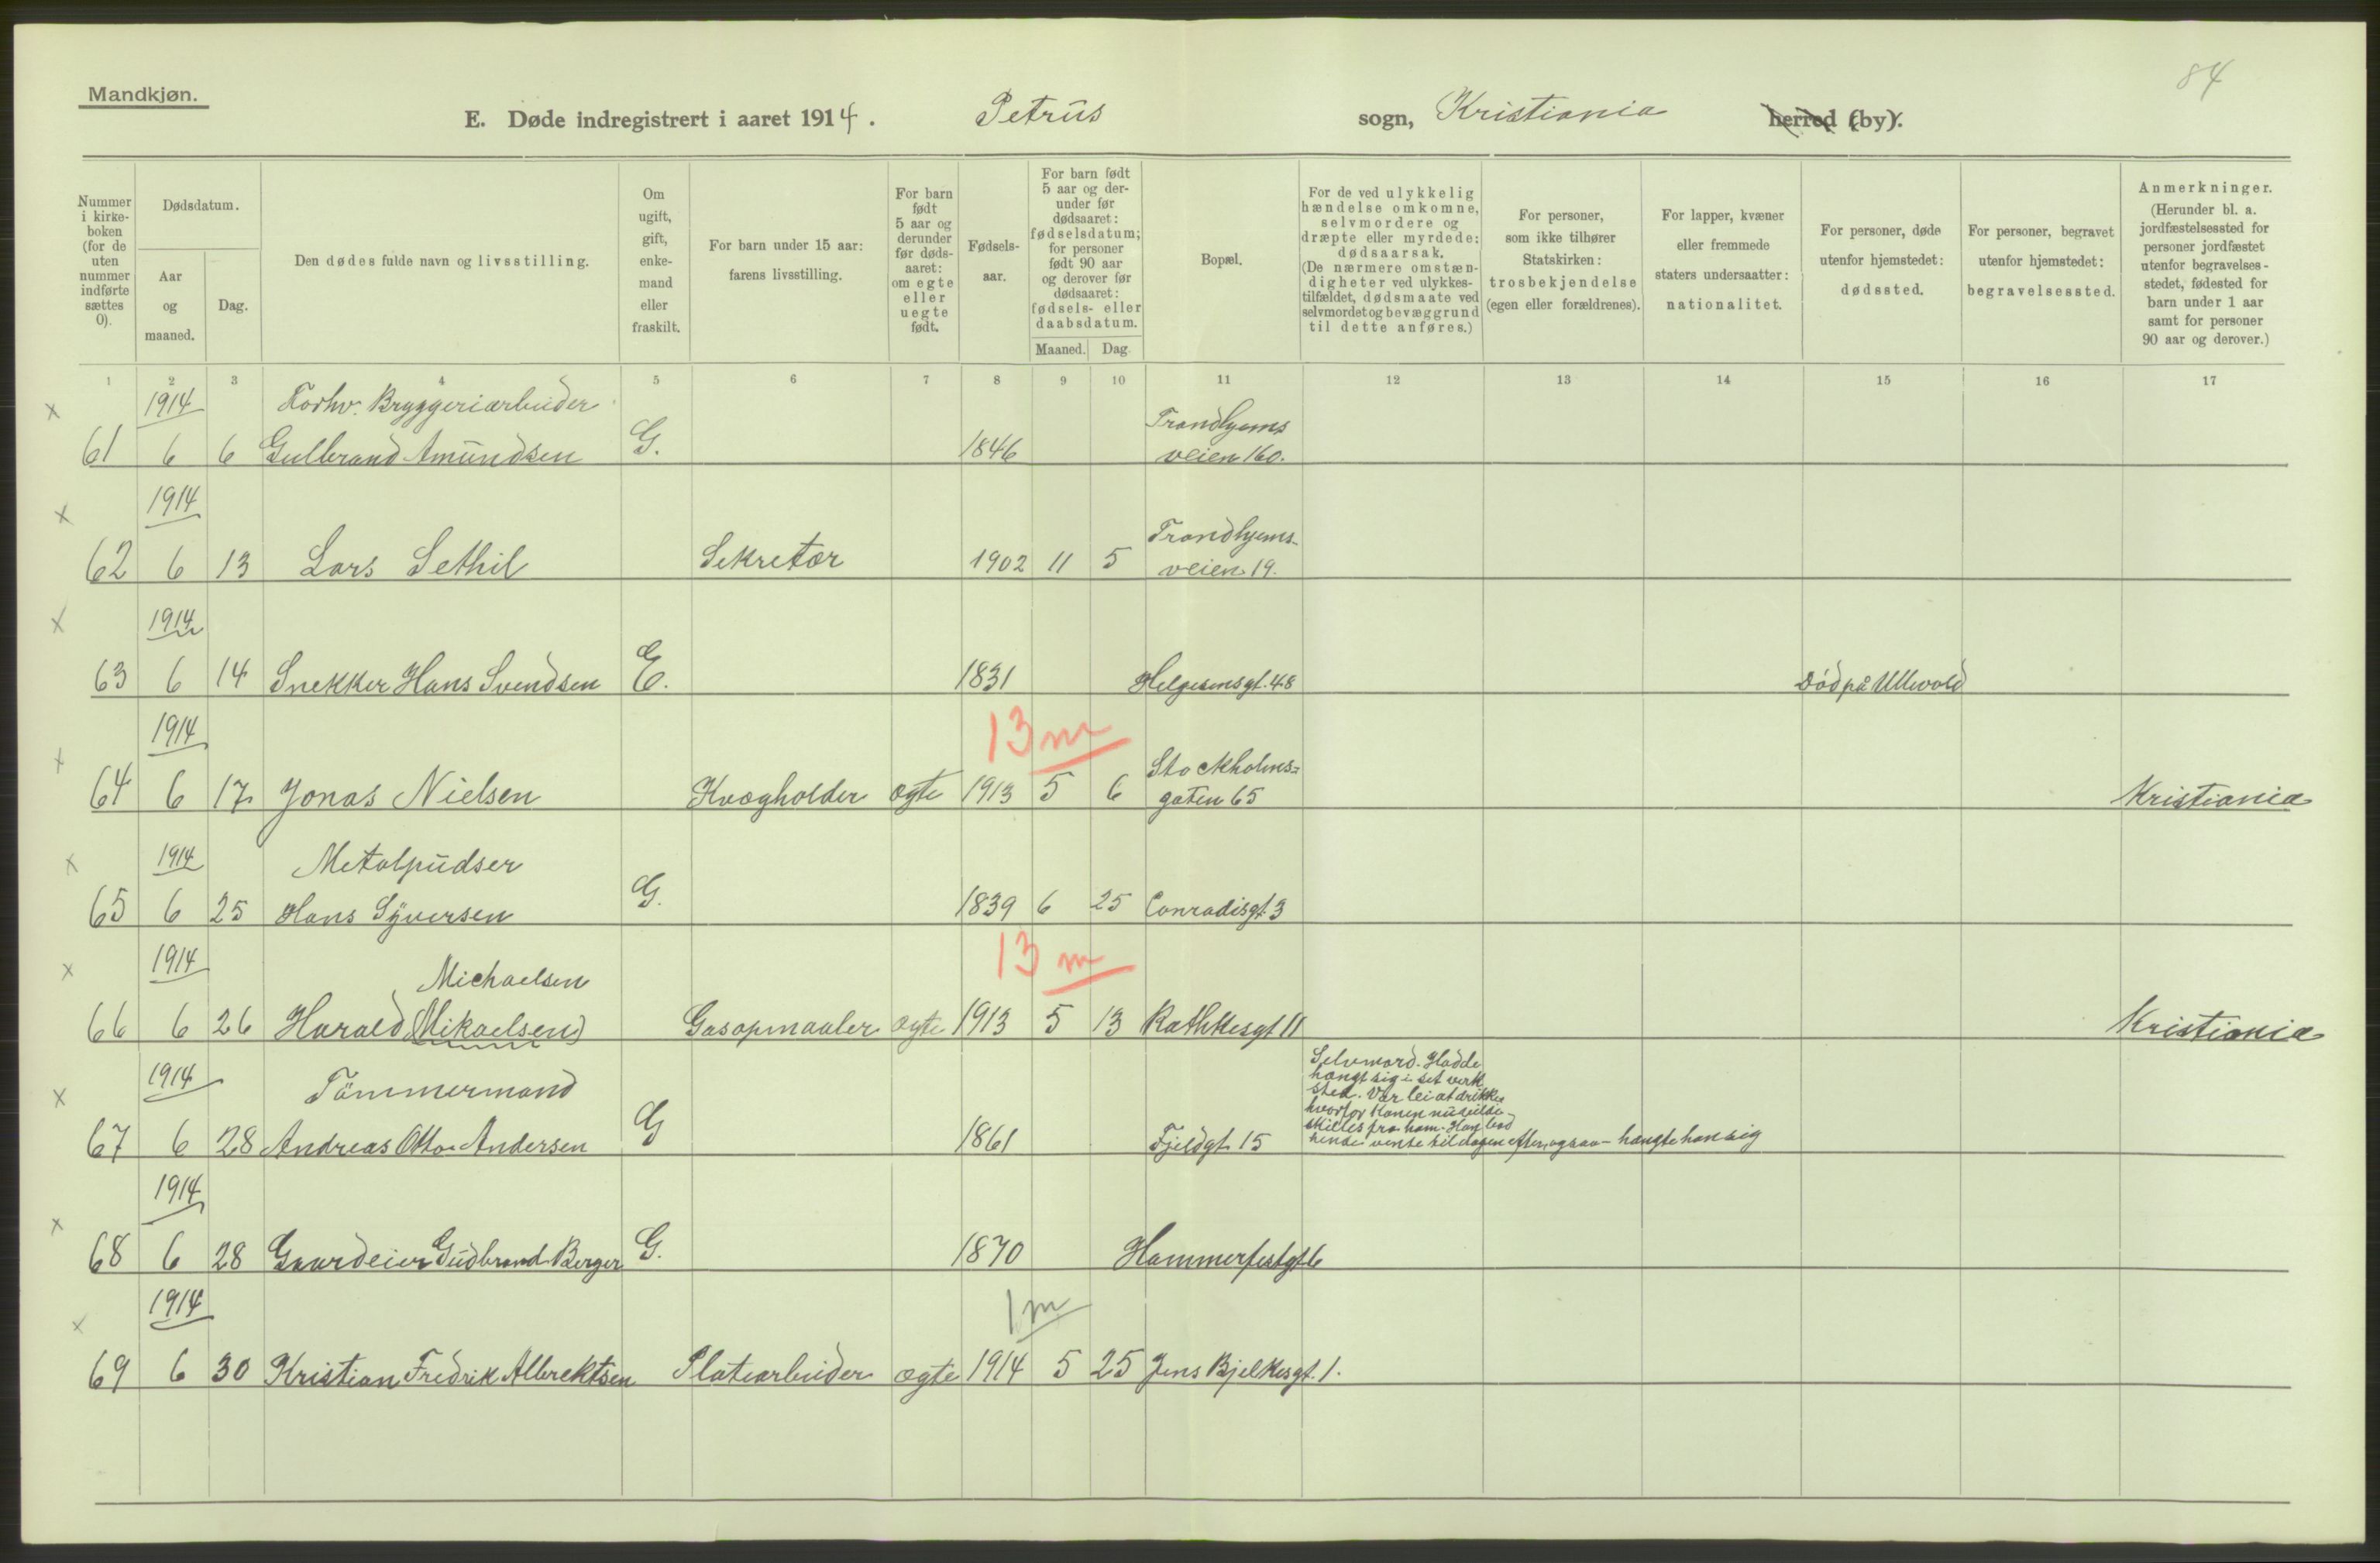 84
Mandkjøn.
E. Døde indregistrert i aaret 1914. Petrus sogn, Kristiania herred (by).
Nummer i kirkeboken (for de uten nummer indførte sættes 0).
Dødsdatum.
Aar og maaned.
Dag.
Den dødes fulde navn og livsstilling.
Om ugift, gift, enkemand eller fraskilt.
For barn under 15 aar: farens livsstilling.
For barn født 5 aar og derunder før dødsaaret: om egte eller uegte født.
Fødselsaar.
For barn født 5 aar og derunder før dødsaaret: fødselsdatum; for personer født 90 aar og derover før dødsaaret: fødsels- eller daabsdatum.
Maaned. Dag.
Bopæl.
For de ved ulykkelig hændelse omkomne, selvmordere og dræpte eller myrdede: dødsaarsak. (De nærmere omstændigheter ved ulykkestilfældet, dødsmaate ved selvmordet og bevæggrund til dette anføres.)
For personer, som ikke tilhører Statskirken: trosbekjendelse (egen eller forældrenes).
For lapper, kvæner eller fremmede staters undersaatter: nationalitet.
For personer, døde utenfor hjemstedet: dødssted.
For personer, begravet utenfor hjemstedet: begravelsessted.
Anmerkninger. (Herunder bl. a. jordfæstelsessted for personer jordfæstet utenfor begravelsesstedet, fødested for barn under 1 aar samt for personer 90 aar og derover.)
1 2 3 4 5 6 7 8 9 10 11 12 13 14 15 16 17
x 1914 Forhv. Bryggeriarbeider Trondhjems
61 6 6 Gulbrand Amundsen G. 1846 veien 160.
x 1914 Trondhjems-
62 6 13 Lars Sethil Sekretær 1902 11 5 veien 19.
x 1914
63 6 14 Snekker Hans Svendsen E. 1831 Helgesensgt. 48 Död på Ullevold
x 1914 13 m Stockholms=
64 6 17 Jonas Nielsen Kvægholder ægte 1913 5 6 gaten 65 Kristiania
x 1914 Metalpudser
65 6 25 Hans Syversen G. 1839 6 25 Conradisgt. 3
x 1914 Michaelsen 13 m
66 6 26 Harald (Mikaelsen) Gasopmaaler ægte 1913 5 13 Rathkesgt 11 Kristiania
x 1914 Tömmermand
Selvmord. Hadde
hængt sig i set verk
sted. Var lei at drikke
hvorfor konen
skilles fra ham.
67 6 28 Andreas Otto Andersen G 1861 Fjeldgt. 15 vente til dagen efter, ogsaa - hængte han sig
x 1914
68 6 28 Gaardeier Gudbrand Berger G. 1870 Hammerfestgt 6
x 1914 1 m
69 6 30 Kristian Fredrik Albrektsen Platearbeider ægte 1914 5 25 Jens Bjelkesgt. 1.